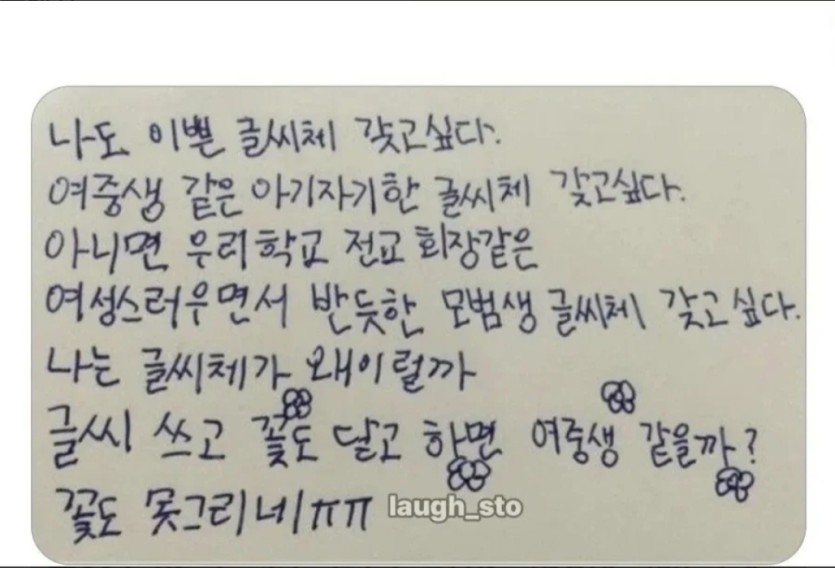 나도 이쁜 글씨체 갖고싶다.
여중생 같은 아기자기한 글씨체 갖고싶다.
아니면 우리학교 전교 회장같은
여성스러우면서 반듯한 모범생 글씨체 갖고싶다.
나는 글씨체가 왜이럴까
글씨 쓰고 꽃도 달고 하면 여중생 같을까?
꽃도 못그리네ㅠㅠ
laugh_sto